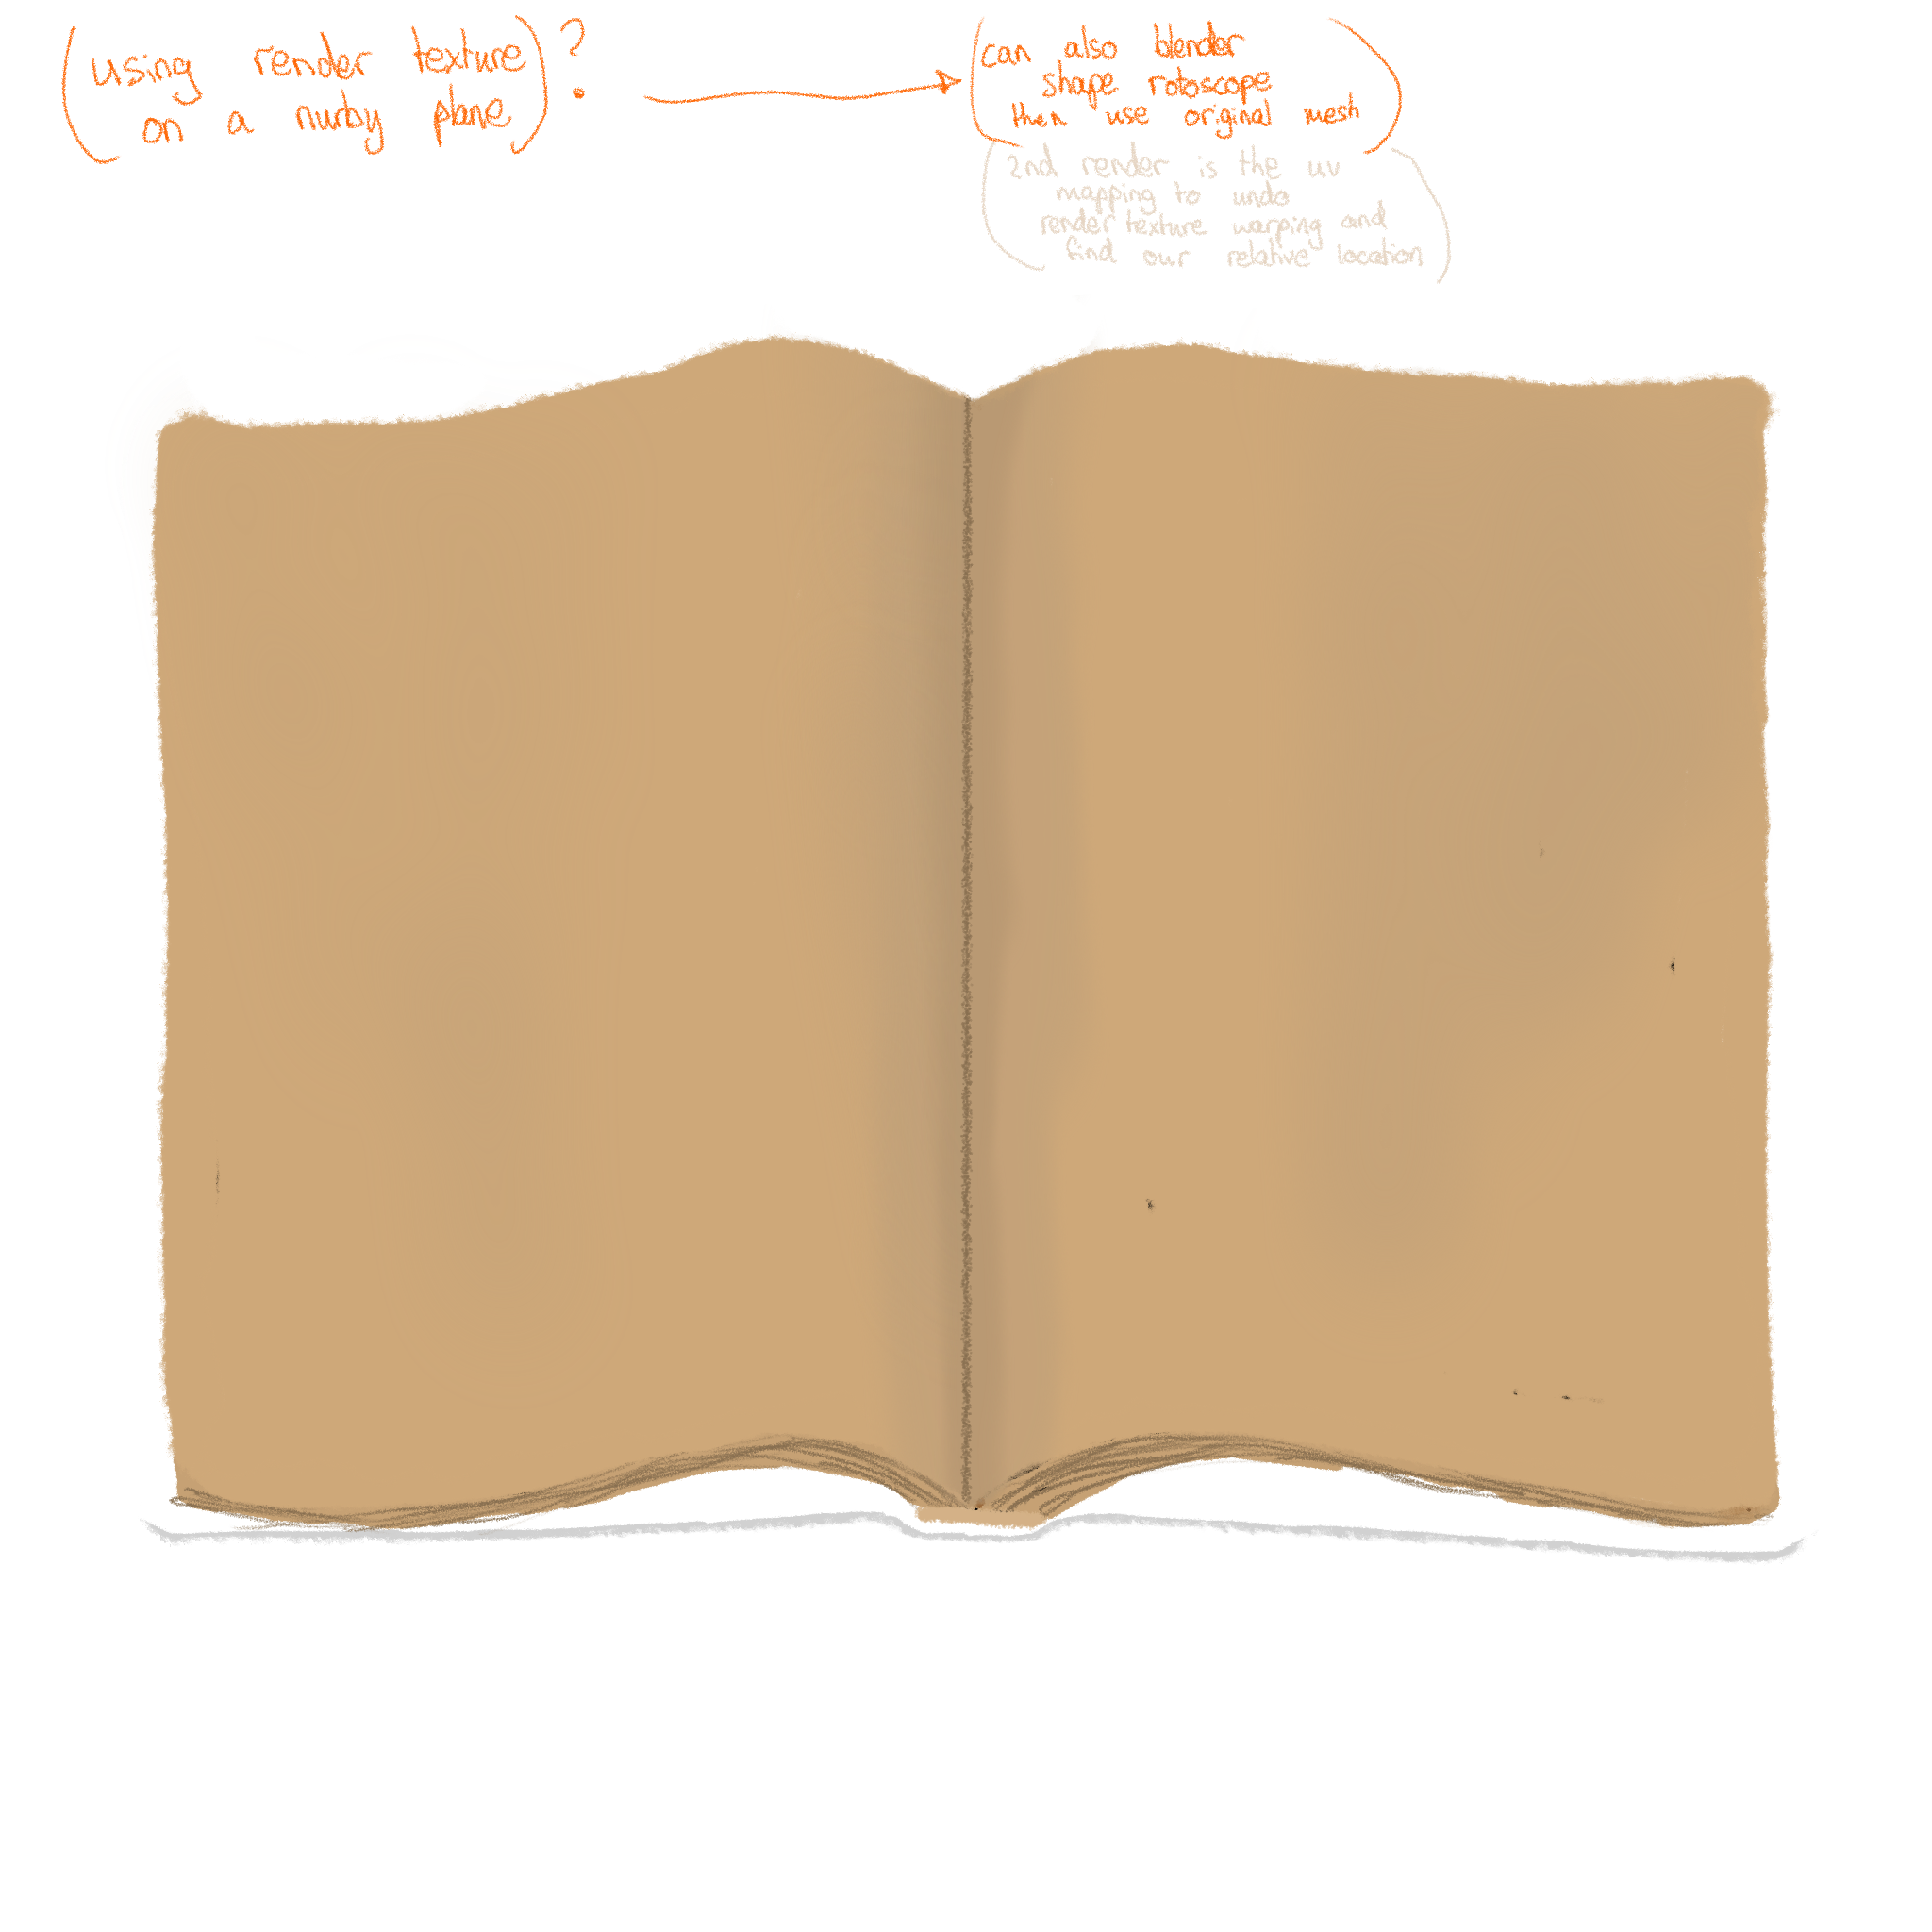 (using render texture
on a nurby plane)?
(can also blender
shape rotoscope
then use original mesh)
(2nd render is the uv
mapping to undo
render texture warping and
find our relative location)